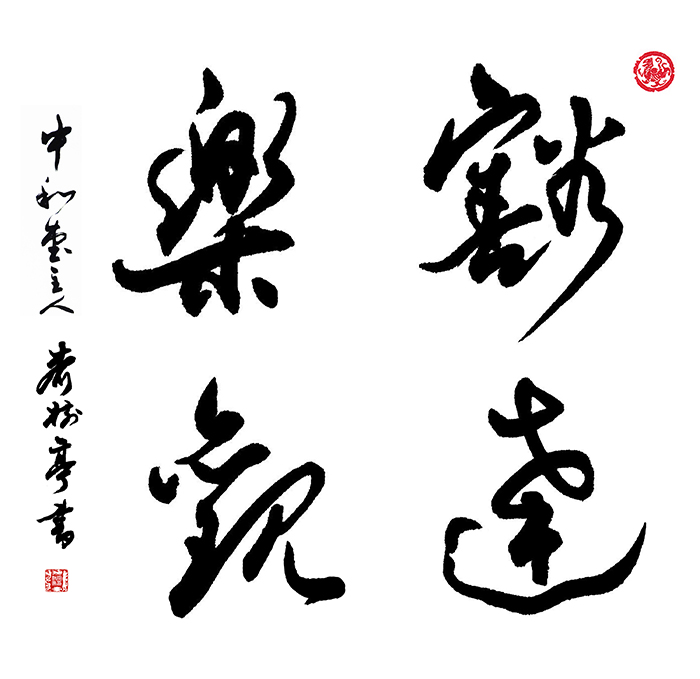 豁達
樂觀
中和堂主人 樹亭書